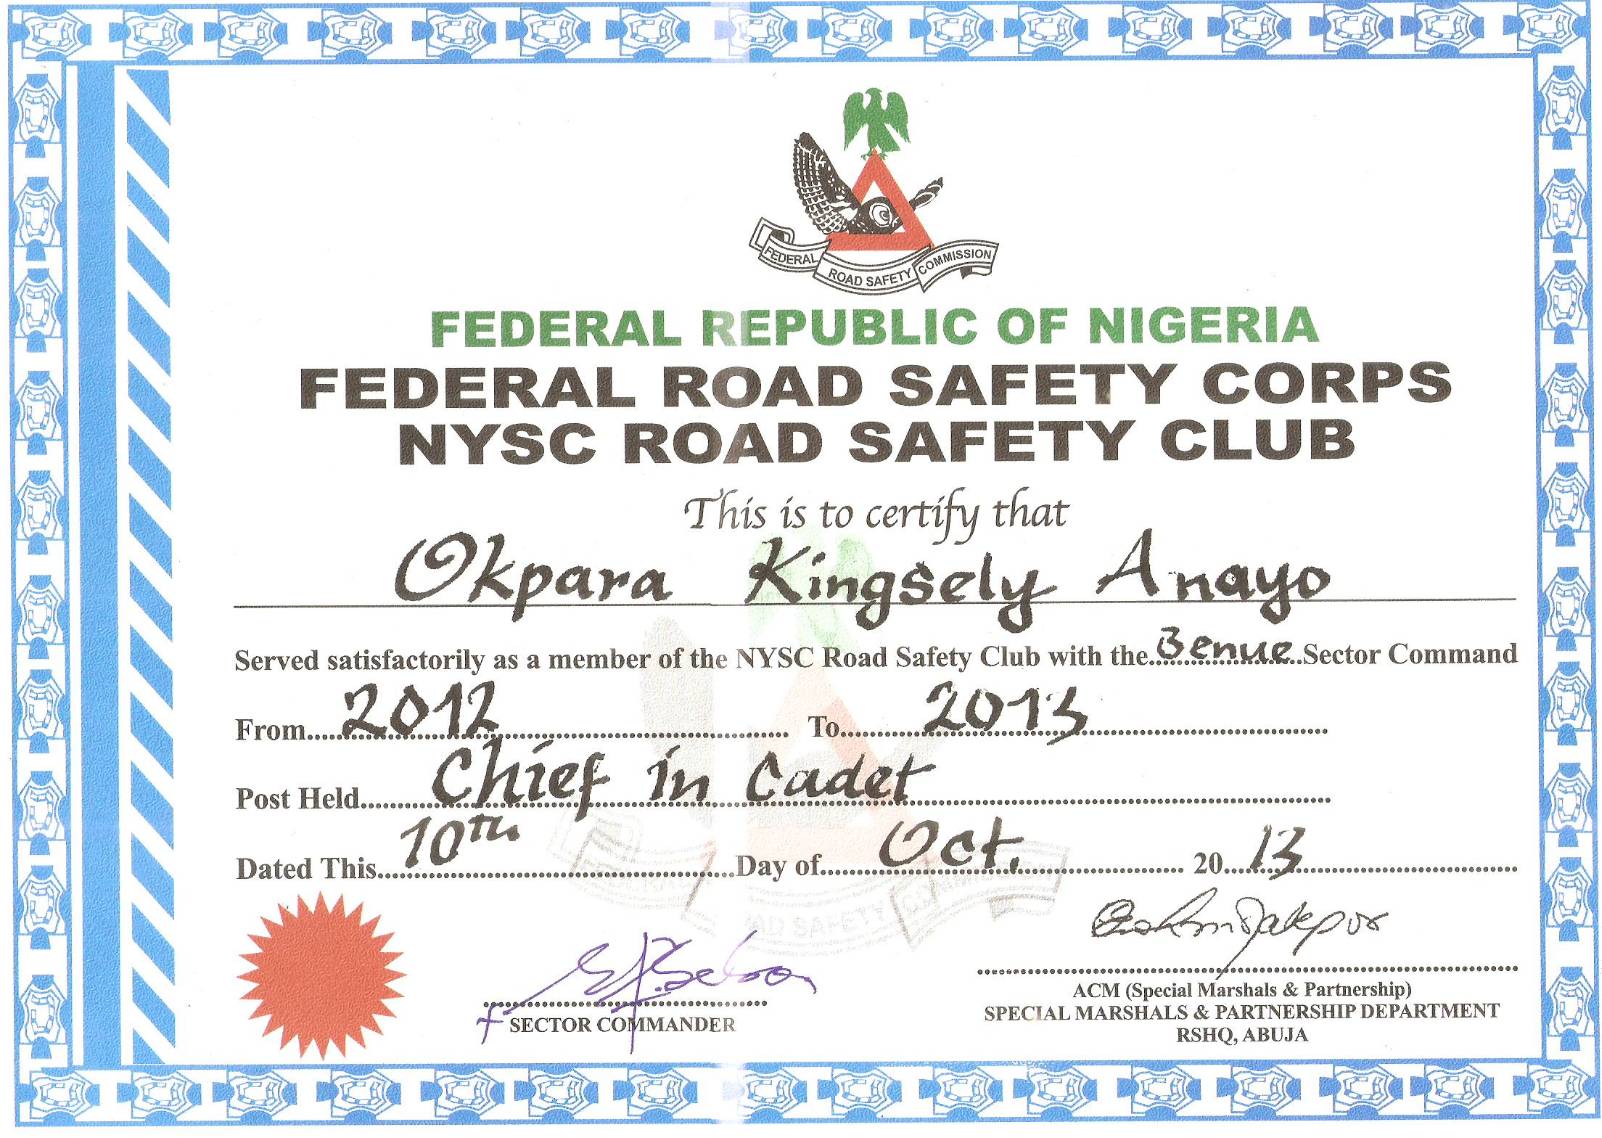 FEDERAL ROAD SAFETY COMMISSION
FEDERAL REPUBLIC OF NIGERIA
FEDERAL ROAD SAFETY CORPS
NYSC ROAD SAFETY CLUB
This is to certify that
Okpara Kingsely Anayo
Served satisfactorily as a member of the NYSC Road Safety Club with the Benue Sector Command
From 2012 To 2013
Post Held Chief in Cadet
Dated This 10th Day of Oct. 2013
SECTOR COMMANDER
ACM (Special Marshals & Partnership)
SPECIAL MARSHALS & PARTNERSHIP DEPARTMENT
RSHQ, ABUJA